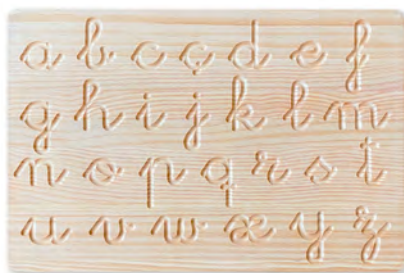 a b c ç d e f
g h i j k l m
n o p q r s t
u v w x y z